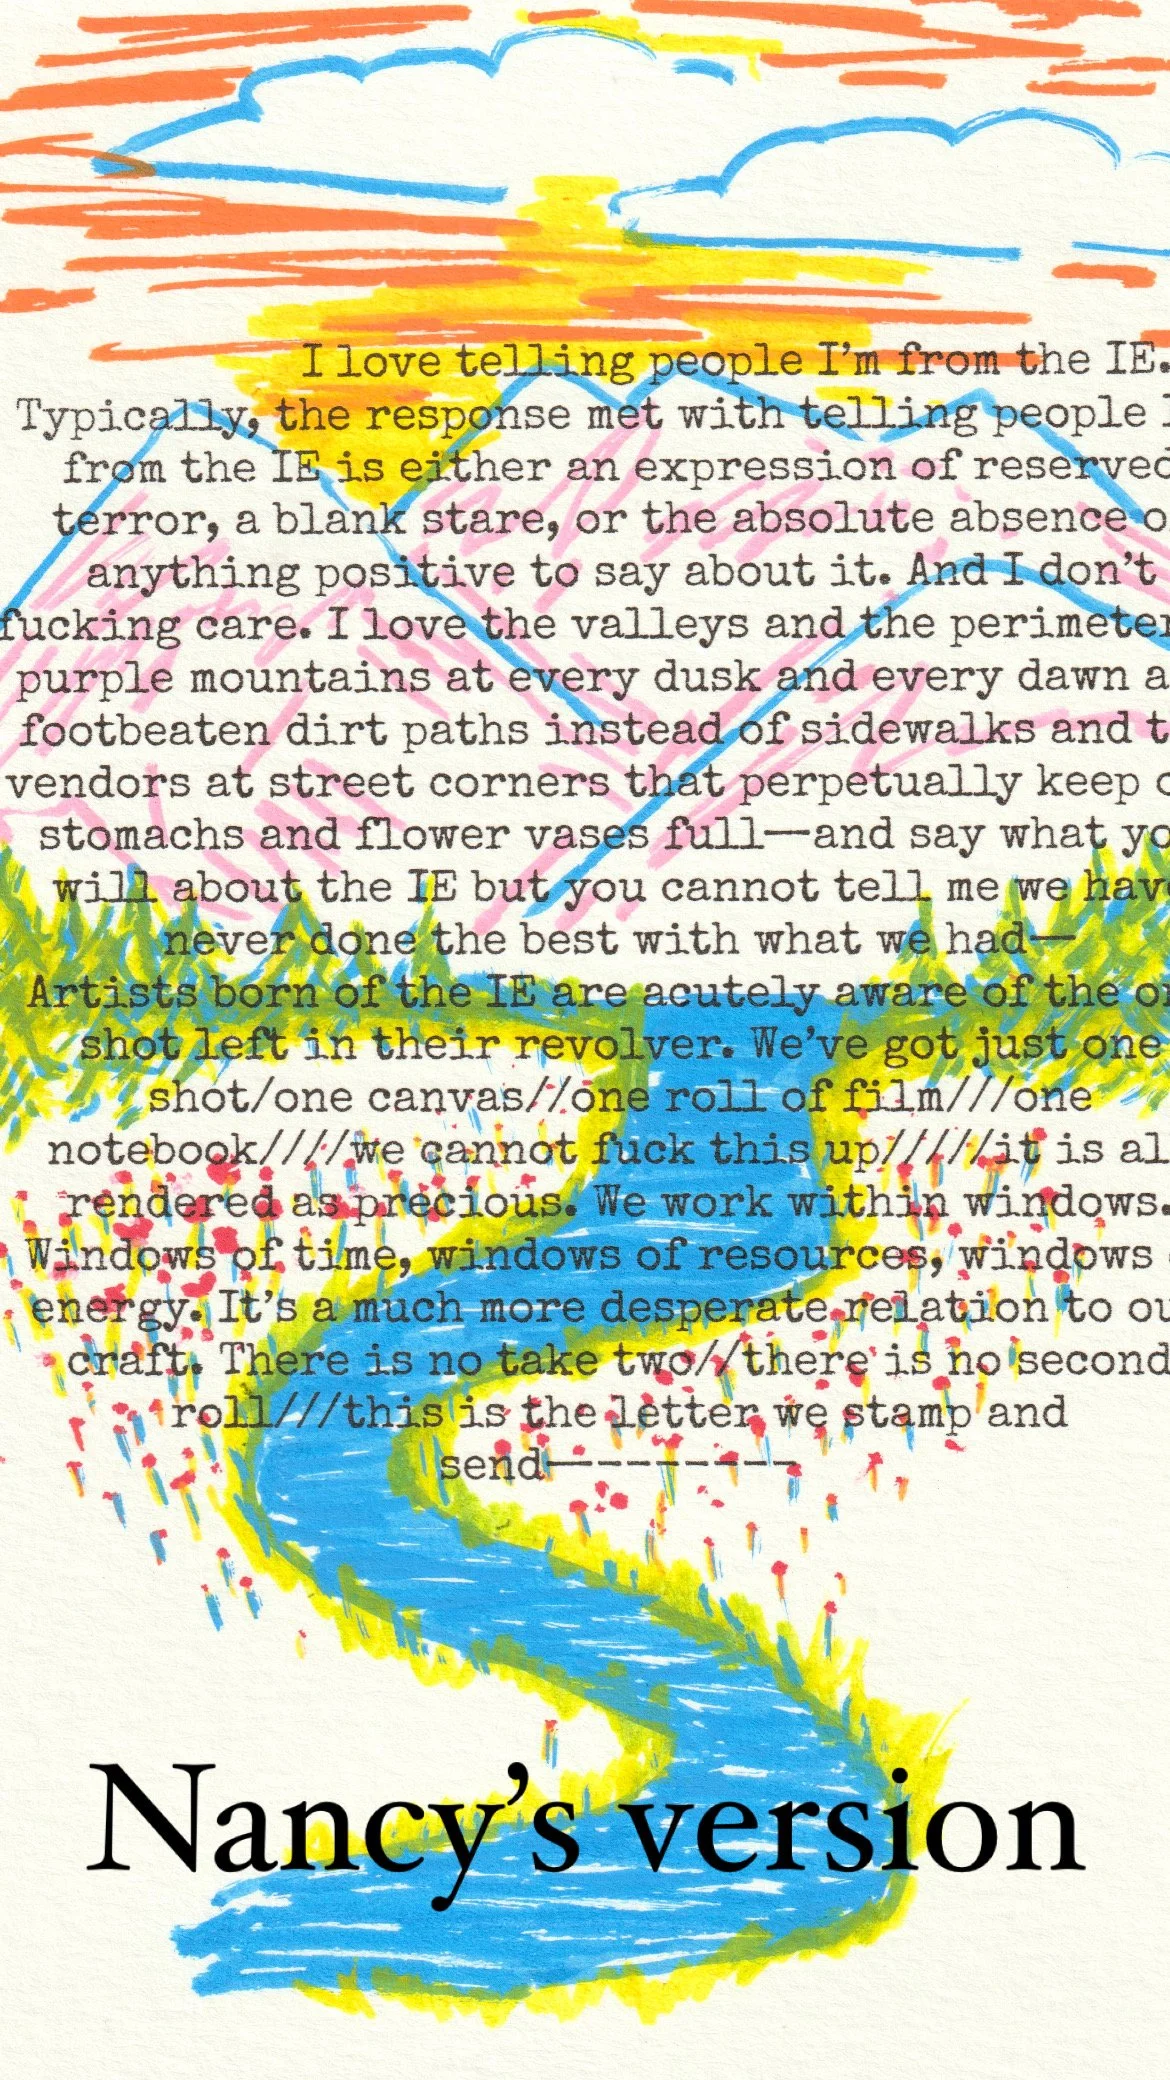 I love telling people I’m from the IE.
Typically, the response met with telling people I
from the IE is either an expression of reserved
terror, a blank stare, or the absolute absence o
anything positive to say about it. And I don’t
fucking care. I love the valleys and the perimeter
purple mountains at every dusk and every dawn a
footbeaten dirt paths instead of sidewalks and t
vendors at street corners that perpetually keep o
stomachs and flower vases full—and say what yo
will about the IE but you cannot tell me we have
never done the best with what we had—
Artists born of the IE are acutely aware of the on
shot left in their revolver. We’ve got just one
shot/one canvas//one roll of film///one
notebook////we cannot fuck this up/////it is al
rendered as precious. We work within windows.
Windows of time, windows of resources, windows
energy. It’s a much more desperate relation to ou
craft. There is no take two//there is no second
roll///this is the letter we stamp and
send—--------
Nancy’s version